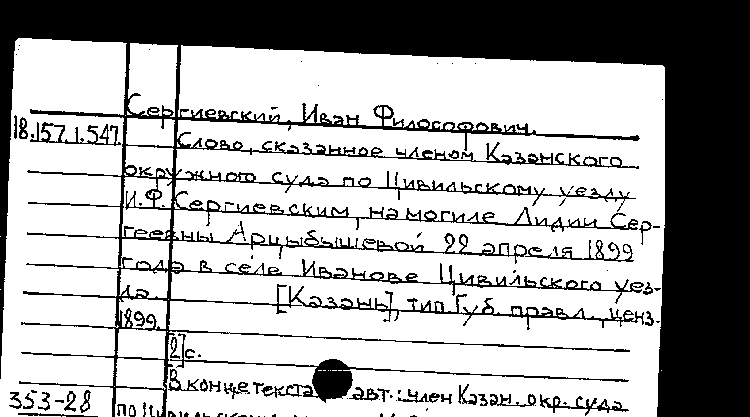 Сергиевский, Иван Философович.
18.157.1.547 Слово, сказанное членом Казанского
окружного суда по Цивильскому уезду
И.Ф. Сергиевским, на могиле Лидии Сер-
геевны Арцыбышевой 22 апреля 1899
года в селе Иванове Цивильского уез-
да. [Казань], тип. Губ. правл., ценз.
1899.
[2] с.
В конце текста авт.: член Казан. окр. суда
353-28 по